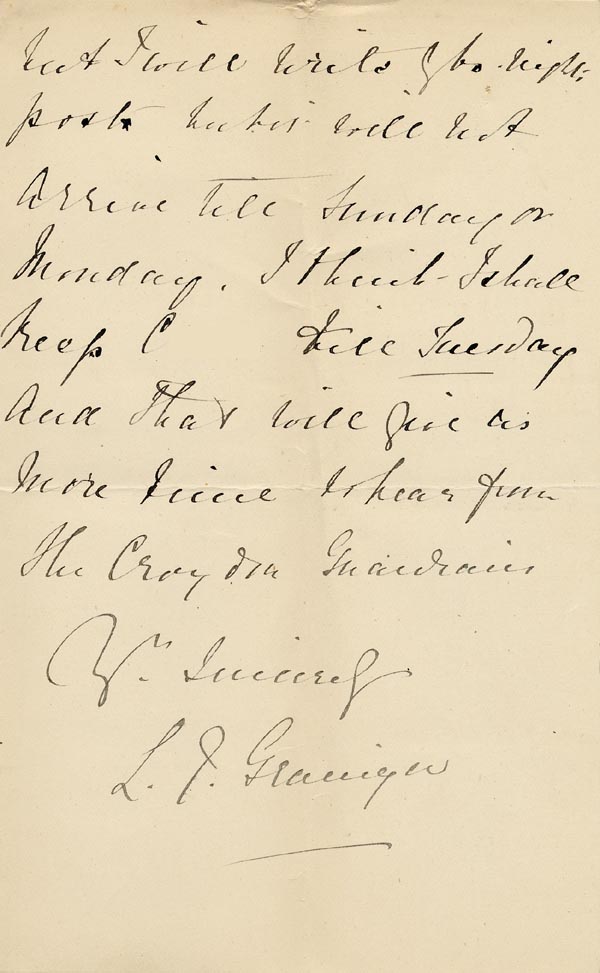 but I will write by to-night's
post but it will not
arrive till Sunday or
Monday. I think I shall
keep C till Tuesday
and that will give us
more time to hear from
the Croydon Guardians
Yrs. Sincerely
L. J. Grainger